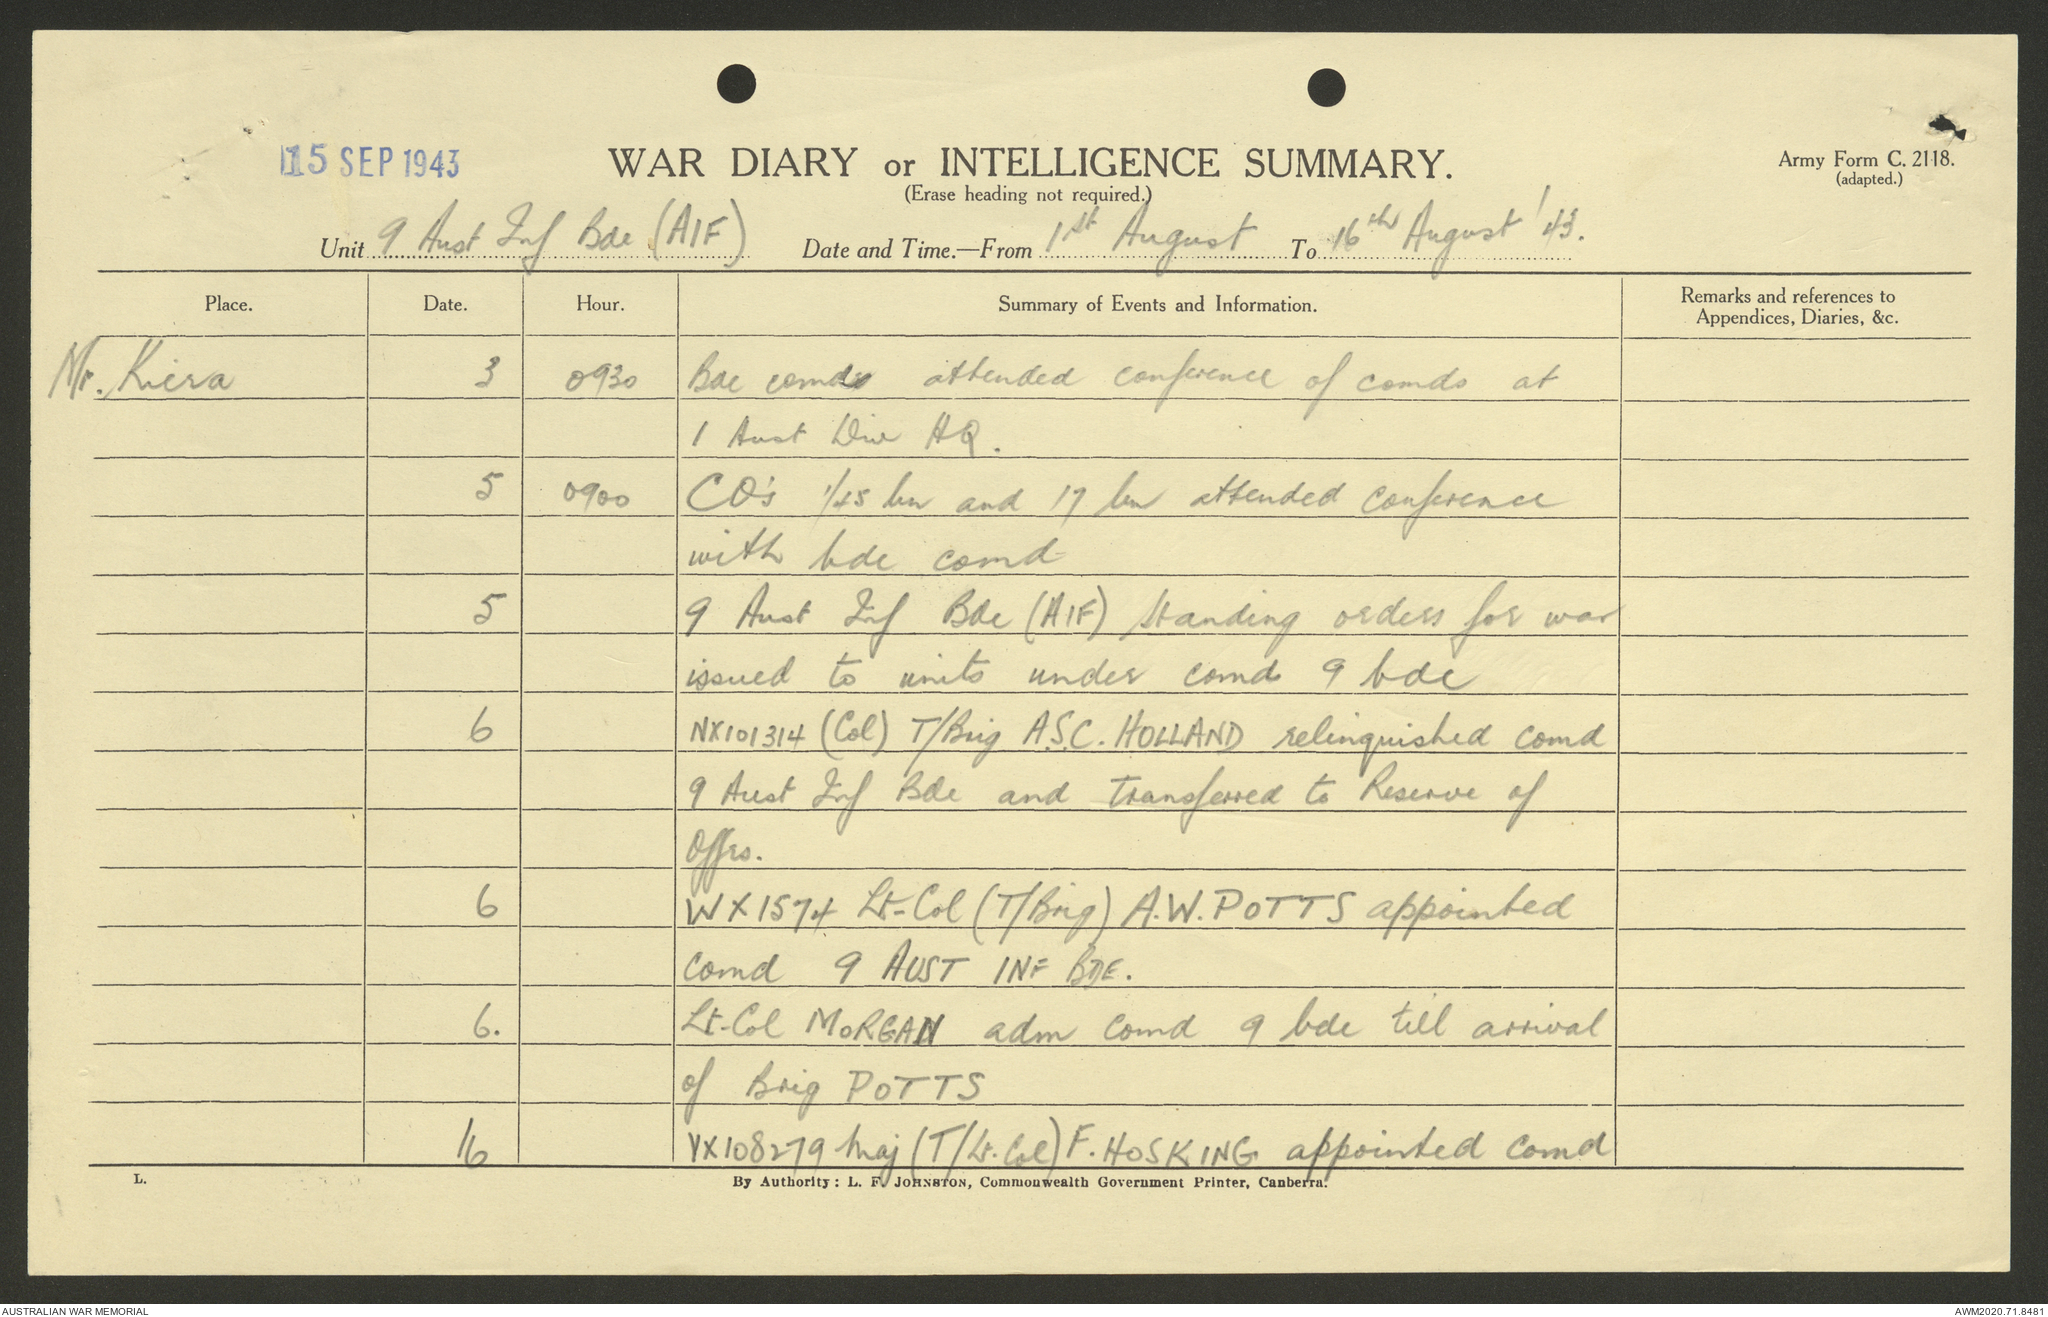 15 SEP 1943
WAR DIARY or INTELLIGENCE SUMMARY.
(Erase heading not required.)
Army Form C. 2118.
(adapted.)
Unit 9 Aust Inf Bde (AIF) Date and Time.—From 1st August To 16th August '43.
Place. Date. Hour. Summary of Events and Information. Remarks and references to
Appendices, Diaries, &c.
Mt. Kiera 3 0930 Bde comds attended conference of comds at
1 Aust Div HQ.
5 0900 CO's 1/45 bn and 17 bn attended conference
with bde comd
5 9 Aust Inf Bde (AIF) standing orders for war
issued to units under comd 9 bde
6 NX101314 (Col) T/Brig A.S.C. HOLLAND relinquished comd
9 Aust Inf Bde and transferred to Reserve of
Offrs.
6 WX1574 Lt-Col (T/Brig) A.W. POTTS appointed
comd 9 AUST INF BDE.
6. Lt-Col MORGAN adm comd 9 bde till arrival
of Brig POTTS
16 VX108279 Maj (T/Lt. Col) F. HOSKING appointed comd
L. By Authority: L. F. JOHNSTON, Commonwealth Government Printer, Canberra.
AUSTRALIAN WAR MEMORIAL AWM2020.71.8481